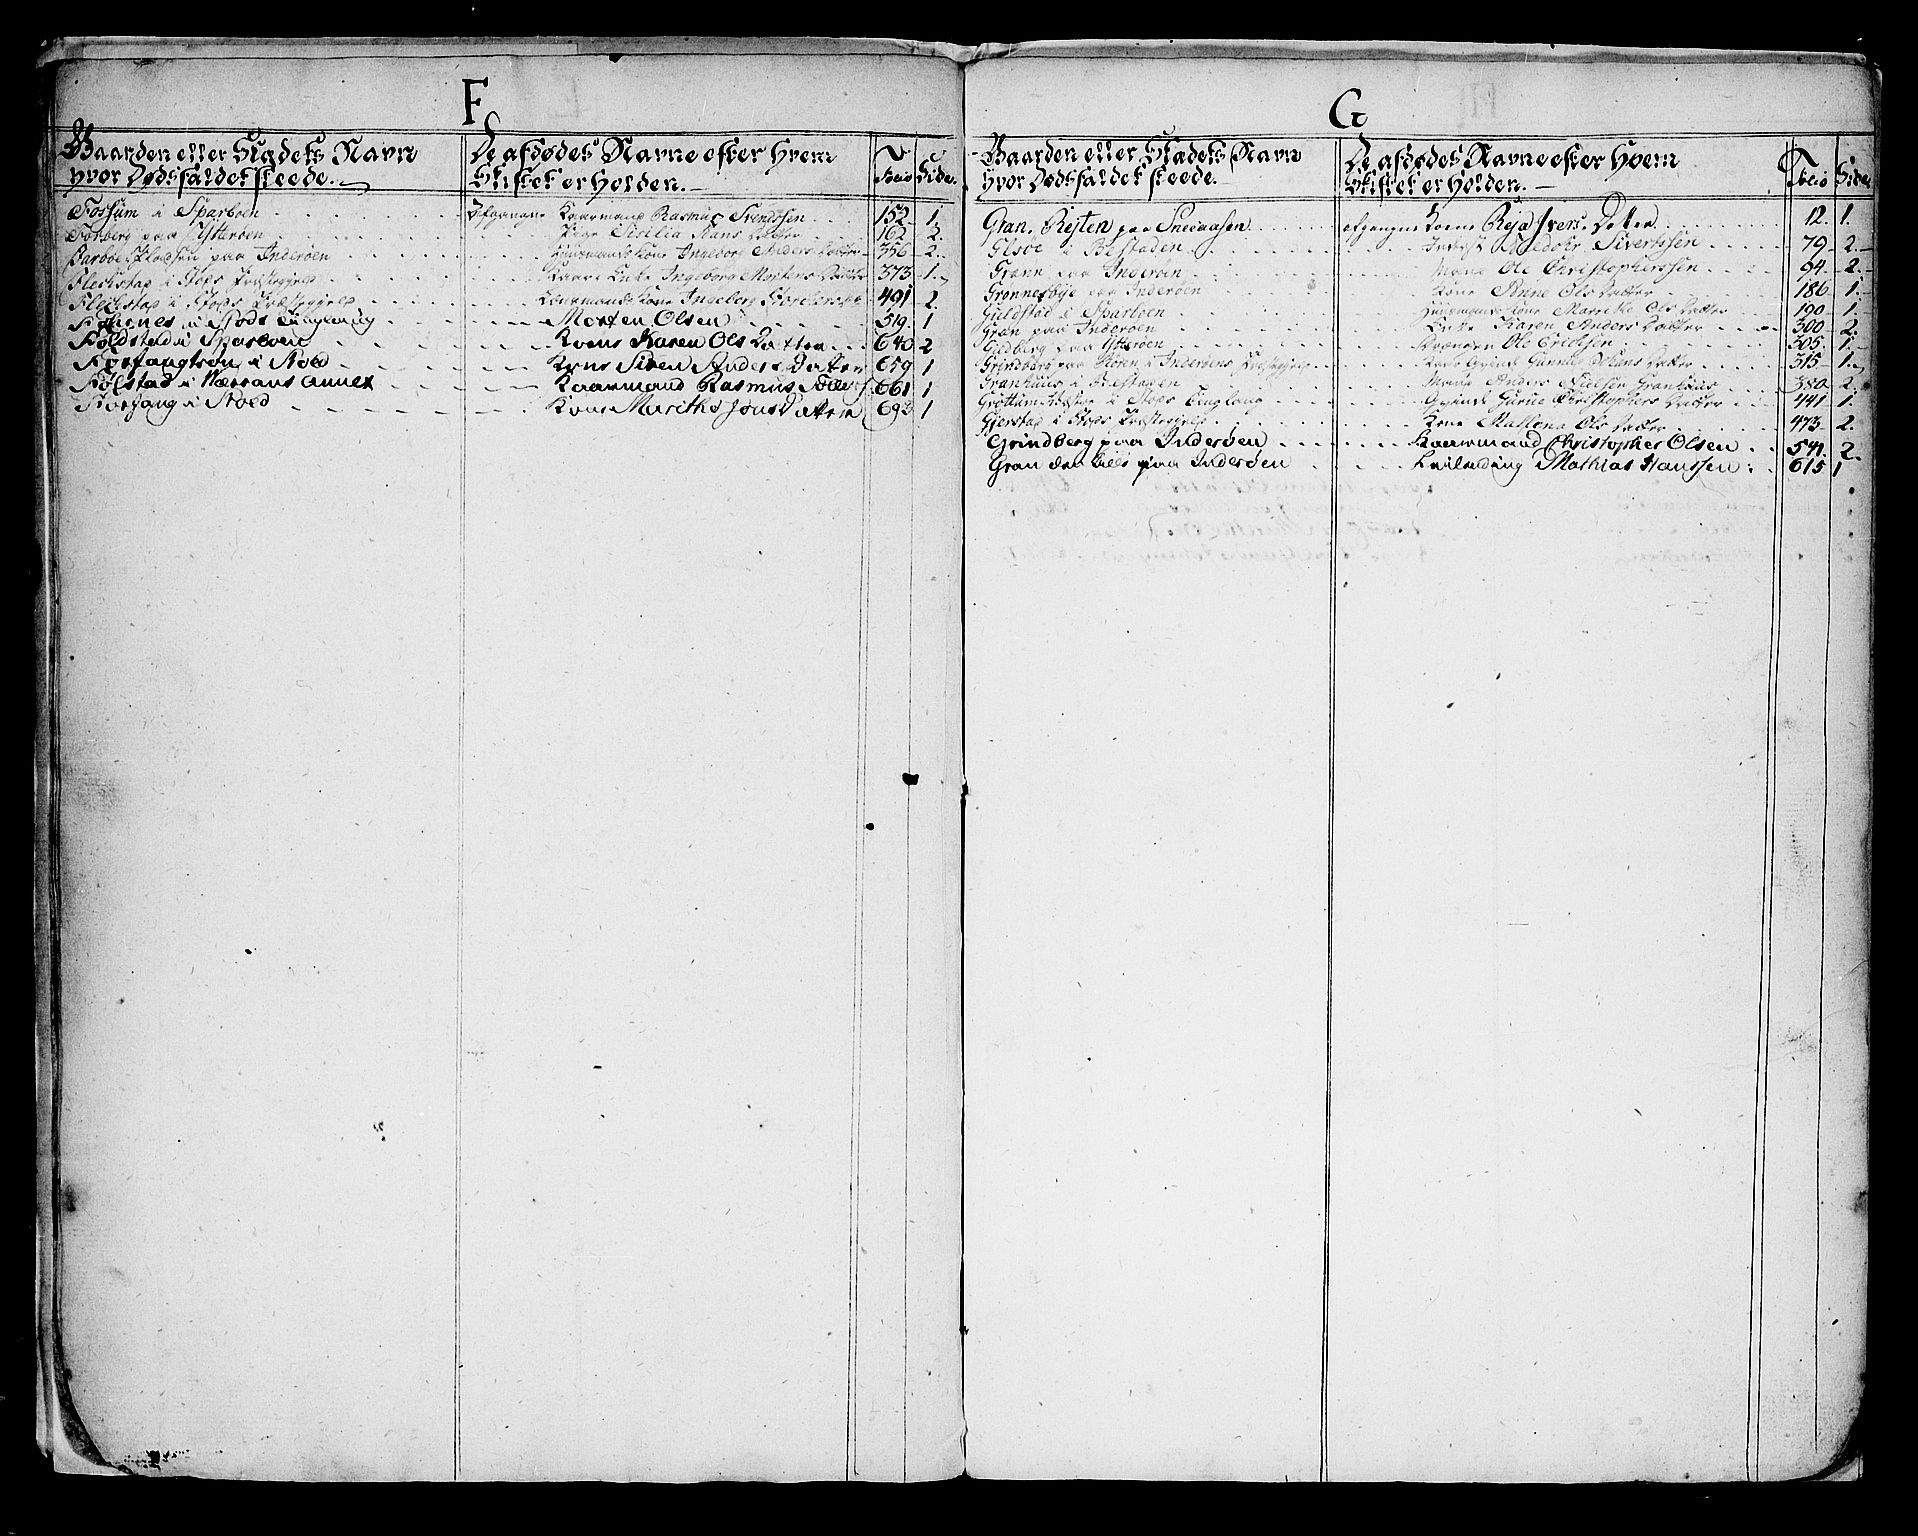 F
Gaarden eller Stædets Navn
hvor Dødsfaldet skeede.
De afdødes Navne efter hvem
Skiftet er holden.
Folio
Side.
Fossum i Sparboen Afgangne Kaarmand Rasmus Svendssen 152. 1.
Forberg paa Ytterøen Pige Cicilia Hans Datter 162 2.
Floesen paa Inderøen Huusmands Kone Ingebor Anders Datter 356 2.
Fleckstad i Stods Præstegield Kaare Enke Ingeborg Mortens Datter 373 1.
Fleckstad i Stods Præstegield Kaarmands Kone Ingeborg 491 2.
i Stods Tinglaug Morten Olsen 519. 1
Foldstad i Sparboen Kone Karen Ols Datter 640 2
i Stoed Kone Siren Anders Datter 659 1
Følstad i Werrans Annex Kaarmand Rasmus 661 1
Forfang i Stoed Kone Marithe Jons Datter 693 1
G
Gaarden eller Stædets Navn
hvor Dødsfaldet skeede.
De afdødes Navne efter hvem
Skiftet er holden.
Folio
Side.
Gran, Rejten paa Sneaasen afgangne Kone Ivers Datter 12. 1.
i Bestaden Sivertssen 79 2.
Grønn paa Inderøen Mand Ole Christopherssen 94 2.
Grønnesbye paa Inderøen Kone Anne Ols Datter 186 1.
Guldstad i Sparboen Huusmands Kone Marrithe Ols Datter 190 1.
Gran paa Inderøen Enke Karen Anders Datter 300 2.
Gudberg paa Ytterøen Ole Ericksen 305. 1.
Grindberg paa i Inderøens Præstegield Gunner Hans Datter 315 1.
Granhuus i Bestaden Mand Anders Nielsen Granhuus 380 2.
Grøttum i Stods Tinglaug Qvinde Gurue Christophers Datter 441 1.
Gjerstad i Stods Præstegield Kone Mallena Ols Datter 473 2.
Grindberg paa Inderøen Kaarmand Christopher Olsen 541. 2.
Gran den lille paa Inderøen Leilending Mathias Hanssen 615 1